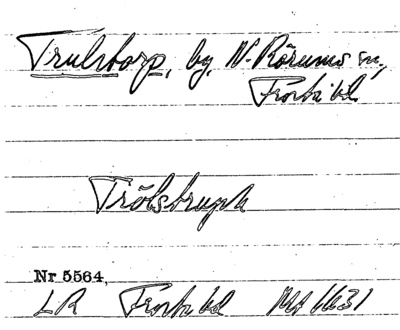 Trulstorp, by, N. Rörums sn,
Frosta hd
Trölstrup
Nr 5564,
LR Frosta hd 1631